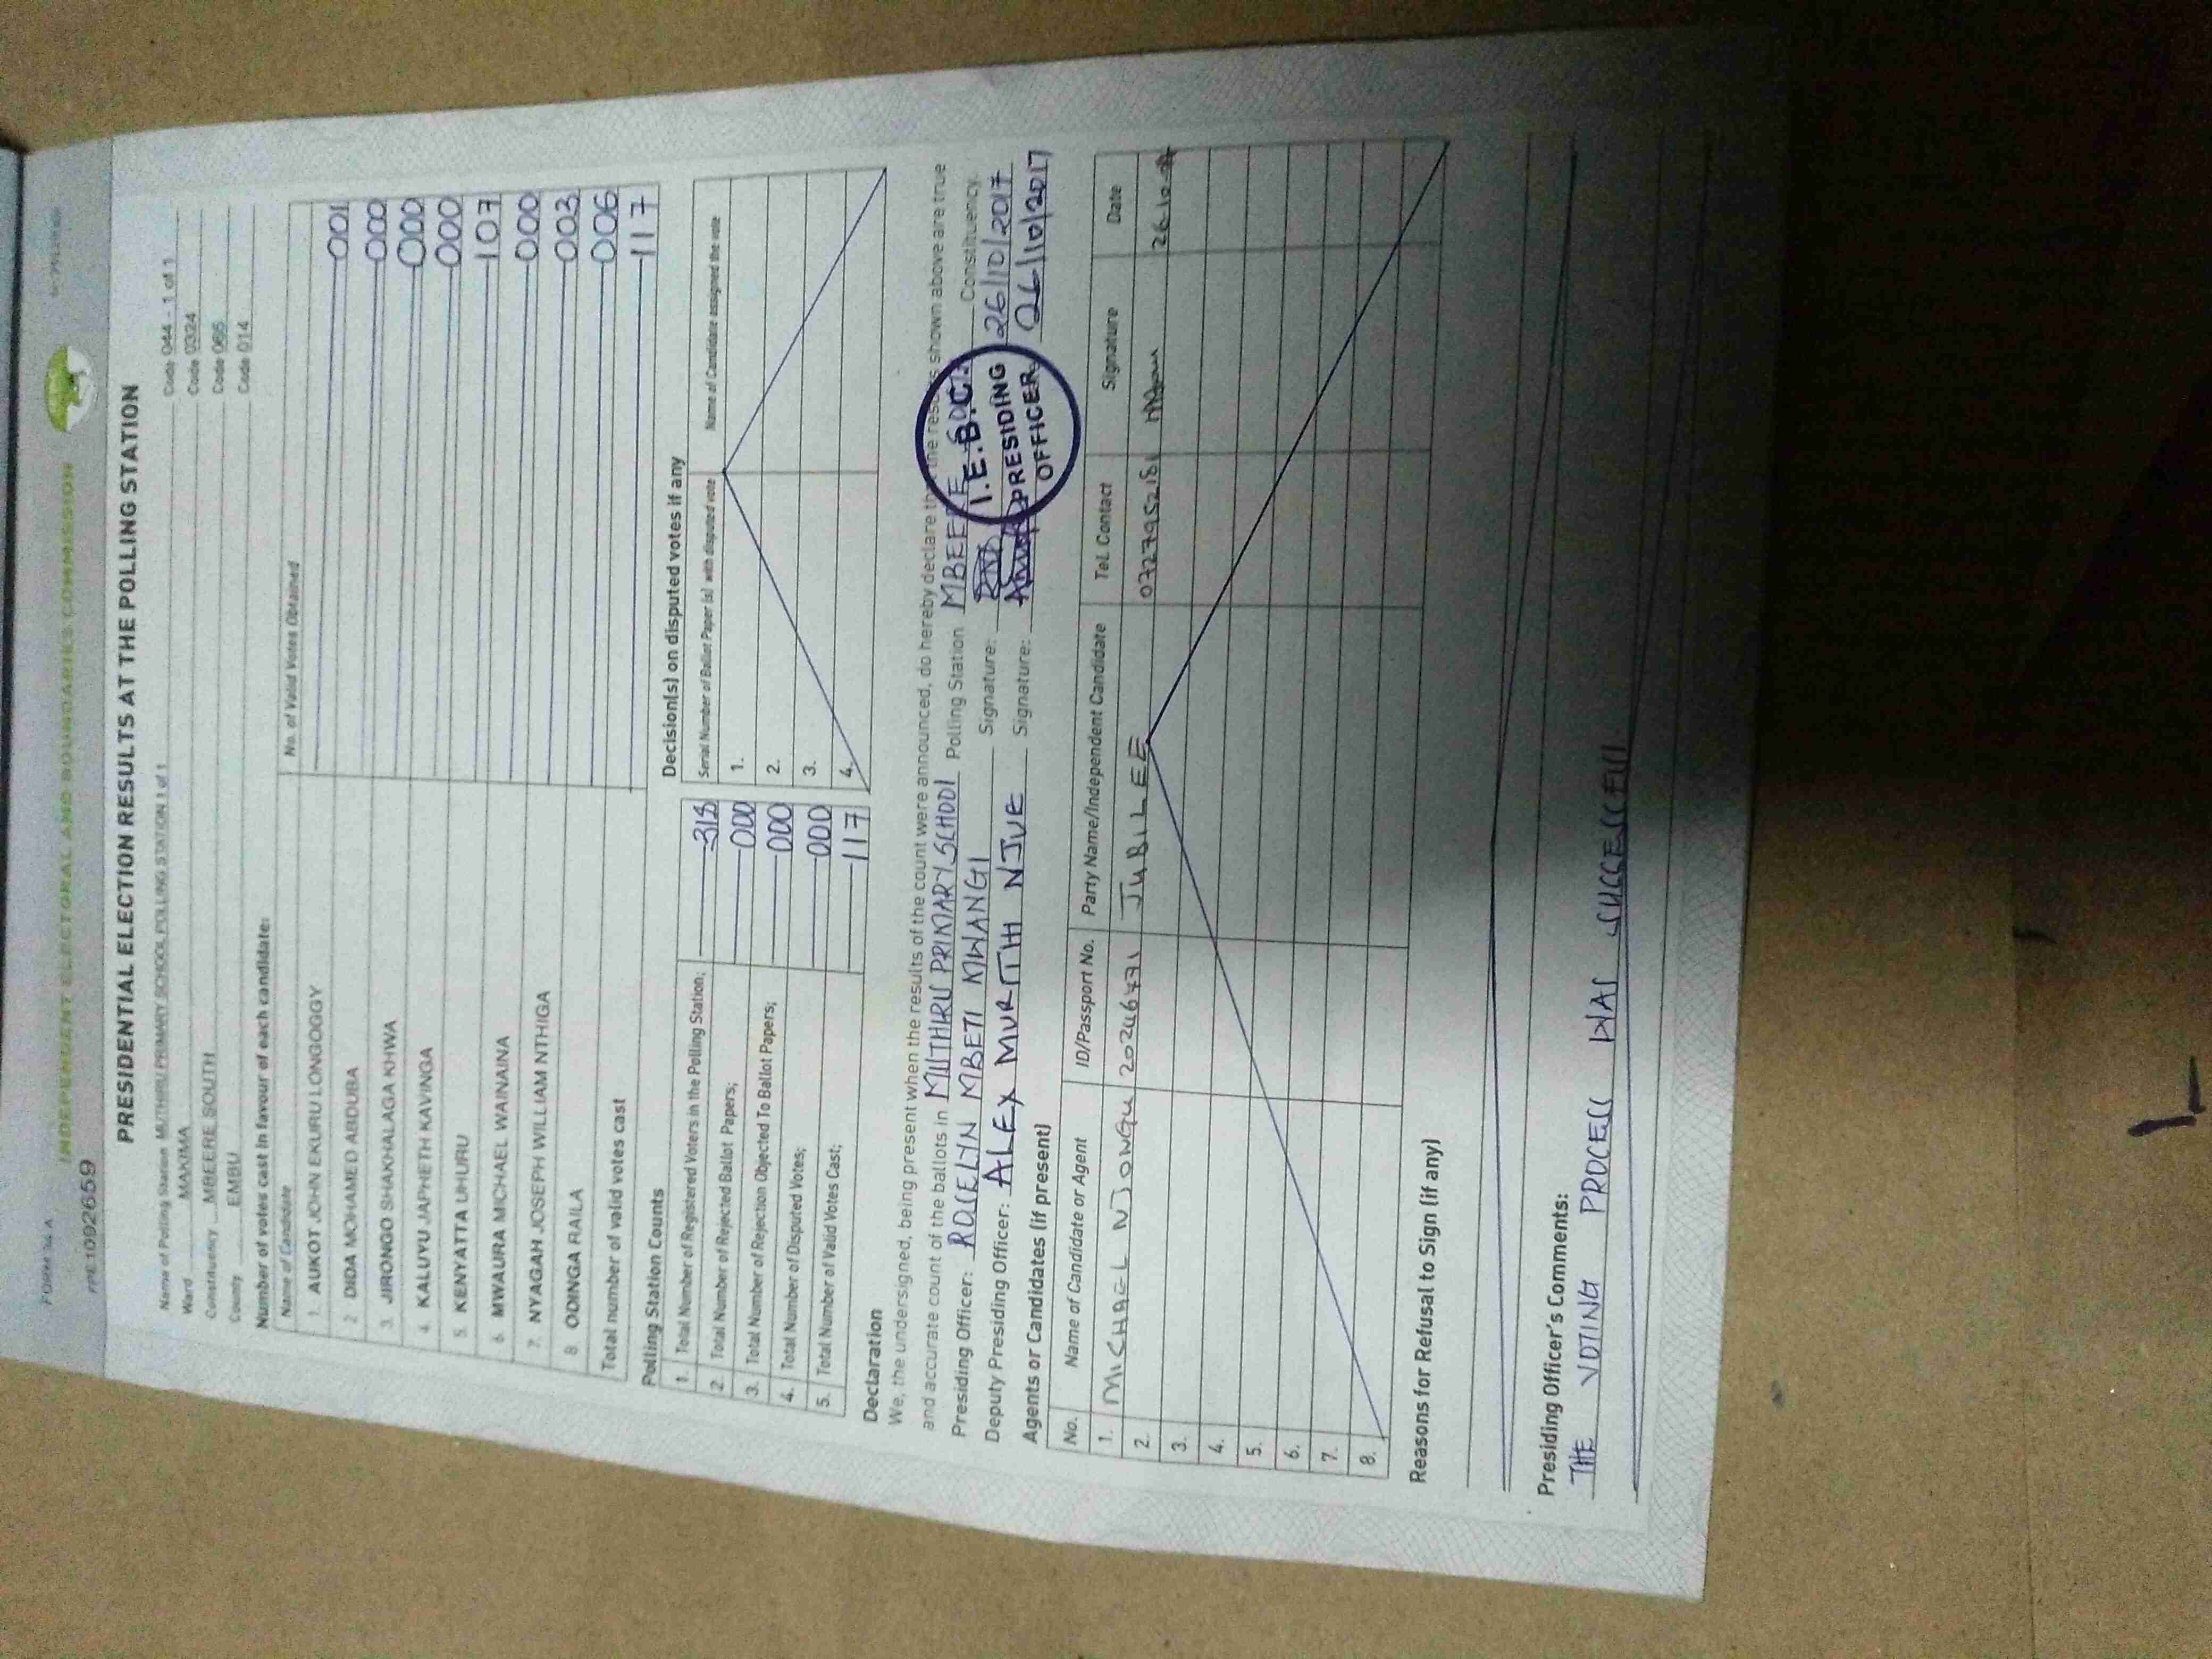 FORM 34 A
INDEPENDENT ELECTORAL AND BOUNDARIES COMMISSION
1092659
PRESIDENTIAL ELECTION RESULTS AT THE POLLING STATION
Name of Polling Station MUTHIRU PRIMARY SCHOOL POLLING STATION 1 of 1 Code 044 - 1 of 1
Ward MAKIMA Code 0324
Constituency MBEERE SOUTH Code 065
County EMBU Code 014
Number of votes cast in favour of each candidate:
Name of Candidate No. of Valid Votes Obtained
1. AUKOT JOHN EKURU LONGOGGY 001
2 DIDA MOHAMED ABDUBA 000
3. JIRONGO SHAKHALAGA KHWA 000
4. KALUYU JAPHETH KAVINGA 000
5. KENYATTA UHURU 107
6 MWAURA MICHAEL WAINAINA 000
7. NYAGAH JOSEPH WILLIAM NTHIGA 003
8 ODINGA RAILA 006
Total number of valid votes cast 117
Polling Station Counts
1. Total Number of Registered Voters in the Polling Station; 318
2. Total Number of Rejected Ballot Papers; 000
3. Total Number of Rejection Objected To Ballot Papers; 000
4. Total Number of Disputed Votes; 000
5. Total Number of Valid Votes Cast; 117
Decision(s) on disputed votes if any
Serial Number of Ballot Paper (s) with disputed vote Name of Candidate assigned the vote
1.
2.
3.
4.
Declaration
We, the undersigned, being present when the results of the count were announced, do hereby declare that the results shown above are true
and accurate count of the ballots in MUTHIRU PRIMARY SCHOOL Polling Station MBEERE SOUTH Constituency.
Presiding Officer: ROSELYN MBETI MWANGI Signature: 26/10/2017
Deputy Presiding Officer: ALEX MURIITHI NJUE Signature: 26/10/2017
I.E.B.C.
PRESIDING
OFFICER
Agents or Candidates (if present)
No. Name of Candidate or Agent ID/Passport No. Party Name/Independent Candidate Tel. Contact Signature Date
1. MICHAEL NJONGU 20246471 JUBILEE 0727952181 26.10.17
2.
3.
4.
5.
6.
7.
8.
Reasons for Refusal to Sign (if any)
Presiding Officer's Comments:
THE VOTING PROCESS WAS SUCCESSFUL.